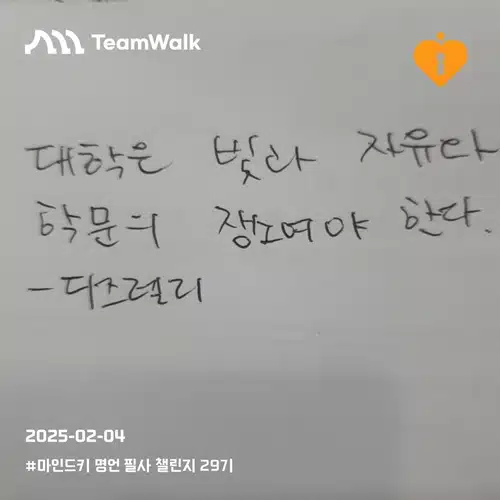 TeamWalk
대학은 빛과 자유와
학문의 장소여야 한다.
-디즈렐리
2025-02-04
#마인드키 명언 필사 챌린지 29기